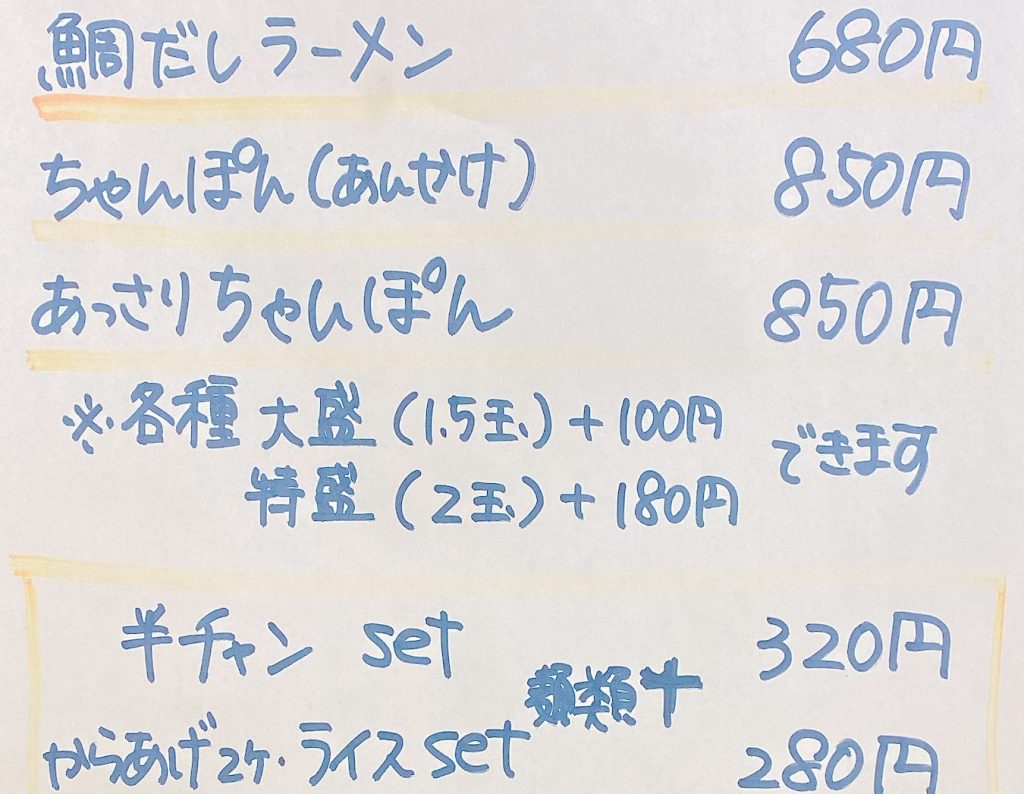 鯛だしラーメン 680円
ちゃんぽん(あんかけ) 850円
あっさりちゃんぽん 850円
※各種 大盛(1.5玉)+100円 できます
特盛(2玉)+180円
半チャン set 320円
類+
からあげ2ケ・ライスset 280円